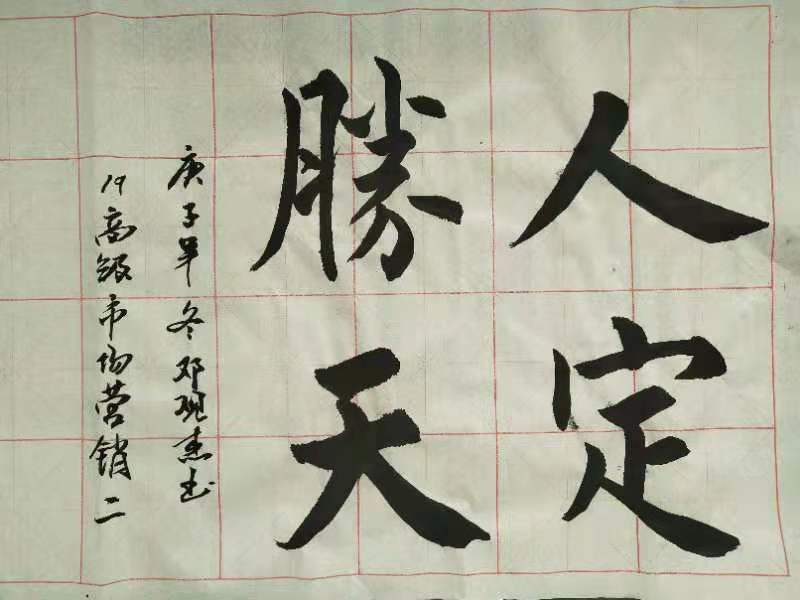 人定
勝天
庚子年冬邓观杰书
19高级市场营销二